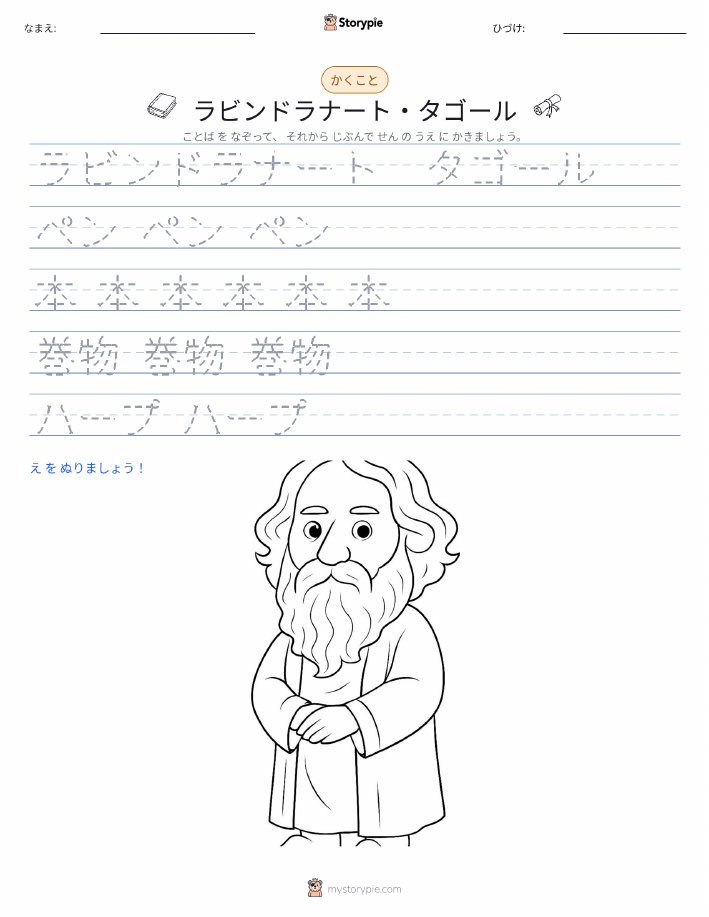 なまえ:
Storypie
ひづけ:
かくこと
ラビンドラナート・タゴール
ことば を なぞって、 それから じぶんで せん の うえ に かきましょう。
ラビンドラナート タゴール
ペン ペン ペン
本 本 本 本 本 本
巻物 巻物 巻物
ハープ ハープ
え を ぬりましょう！
mystorypie.com